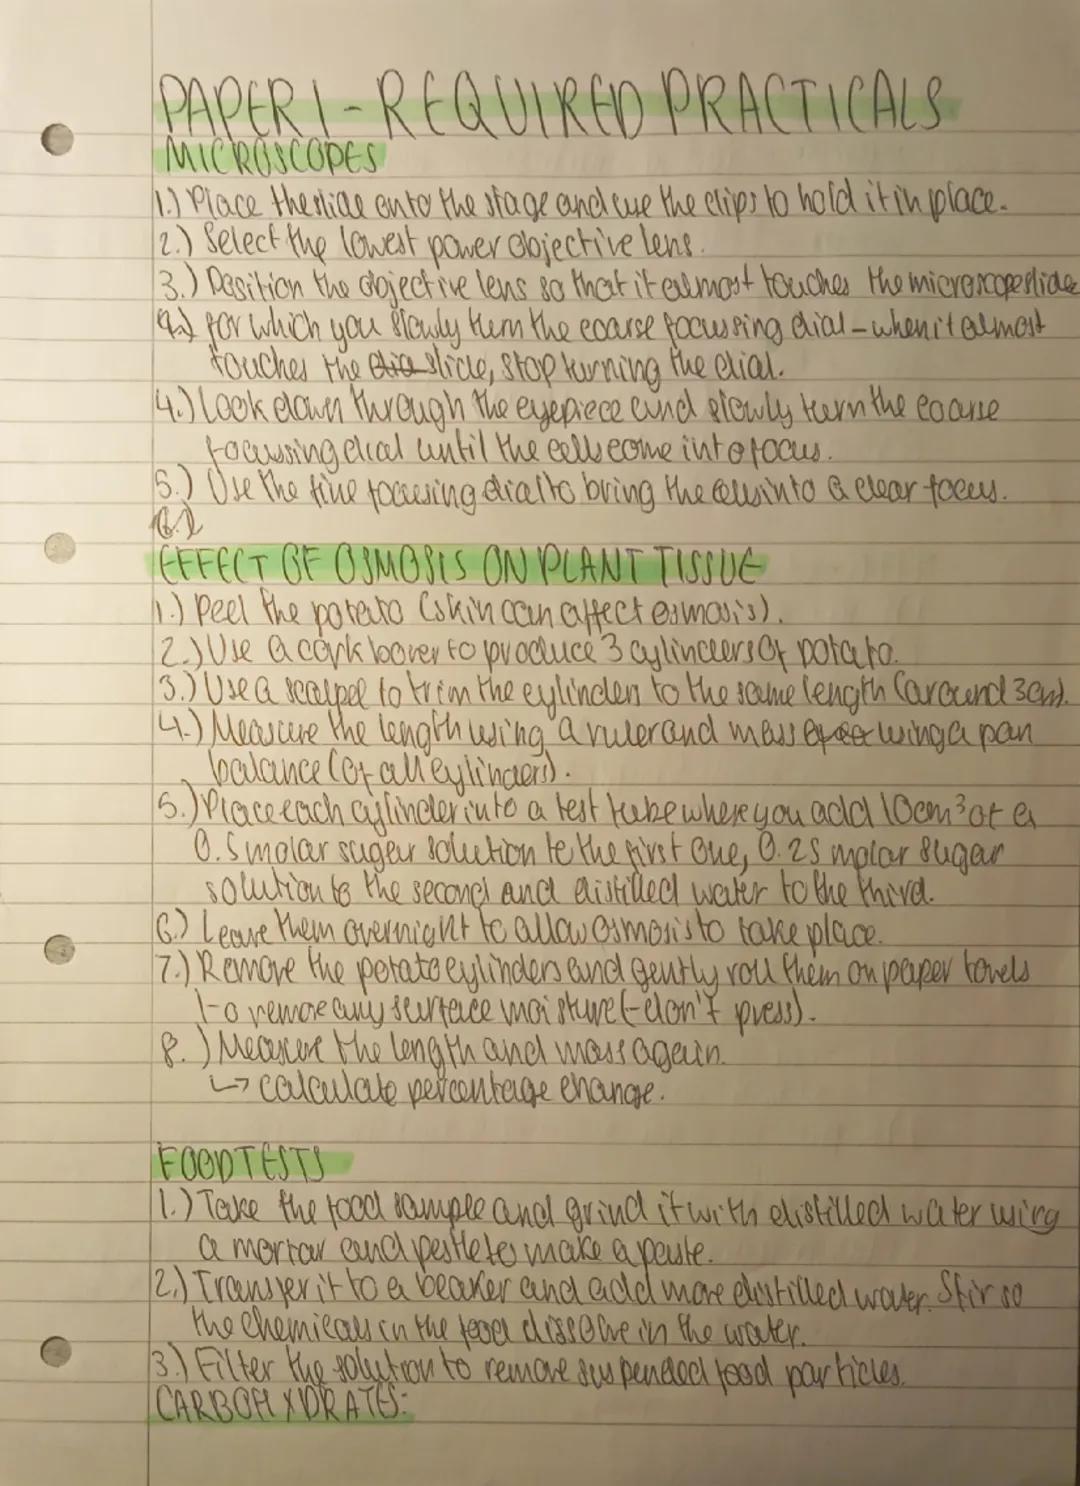 PAPER 1 - REQUIRED PRACTICALS
MICROSCOPES
1.) Place the slide onto the stage and use the clips to hold it in place.
2.) Select the lowest power objective lens.
3.) Position the objective lens so that it almost touches the microscope slide
for which you slowly turn the coarse focussing dial - when it almost
touches the slide, stop turning the dial.
4.) Look down through the eyepiece and slowly turn the coarse
focussing dial until the cells come into focus.
5.) Use the fine focusing dial to bring the cells into a clear focus.
EFFECT OF OSMOSIS ON PLANT TISSUE
1.) Peel the potato (skin can affect osmosis).
2.) Use a cork borer to produce 3 cylinders of potato.
3.) Use a scalpel to trim the cylinders to the same length (around 3cm).
4.) Measure the length using a ruler and mass using a pan
balance (of all cylinders).
5.) Place each cylinder into a test tube where you add 10cm³ of a
0.5 molar sugar solution to the first one, 0.25 molar sugar
solution to the second and distilled water to the third.
6.) Leave them overnight to allow osmosis to take place.
7.) Remove the potato cylinders and gently roll them on paper towels
to remove any surface moisture (-don't press).
8.) Measure the length and mass again.
↳ calculate percentage change.
FOOD TESTS
1.) Take the food sample and grind it with distilled water using
a mortar and pestle to make a paste.
2.) Transfer it to a beaker and add more distilled water. Stir so
the chemicals in the food dissolve in the water.
3.) Filter the solution to remove suspended food particles.
CARBOHYDRATES: